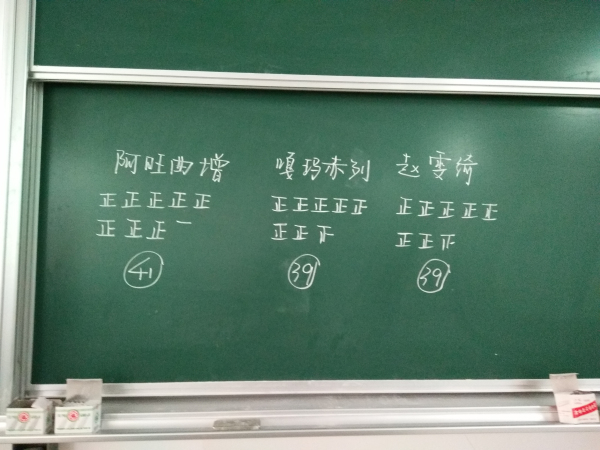 阿旺曲增 嘎玛赤列 赵雯绮
正正正正正 正正正正正 正正正正正
正正正一 正正 正正
41 39 39